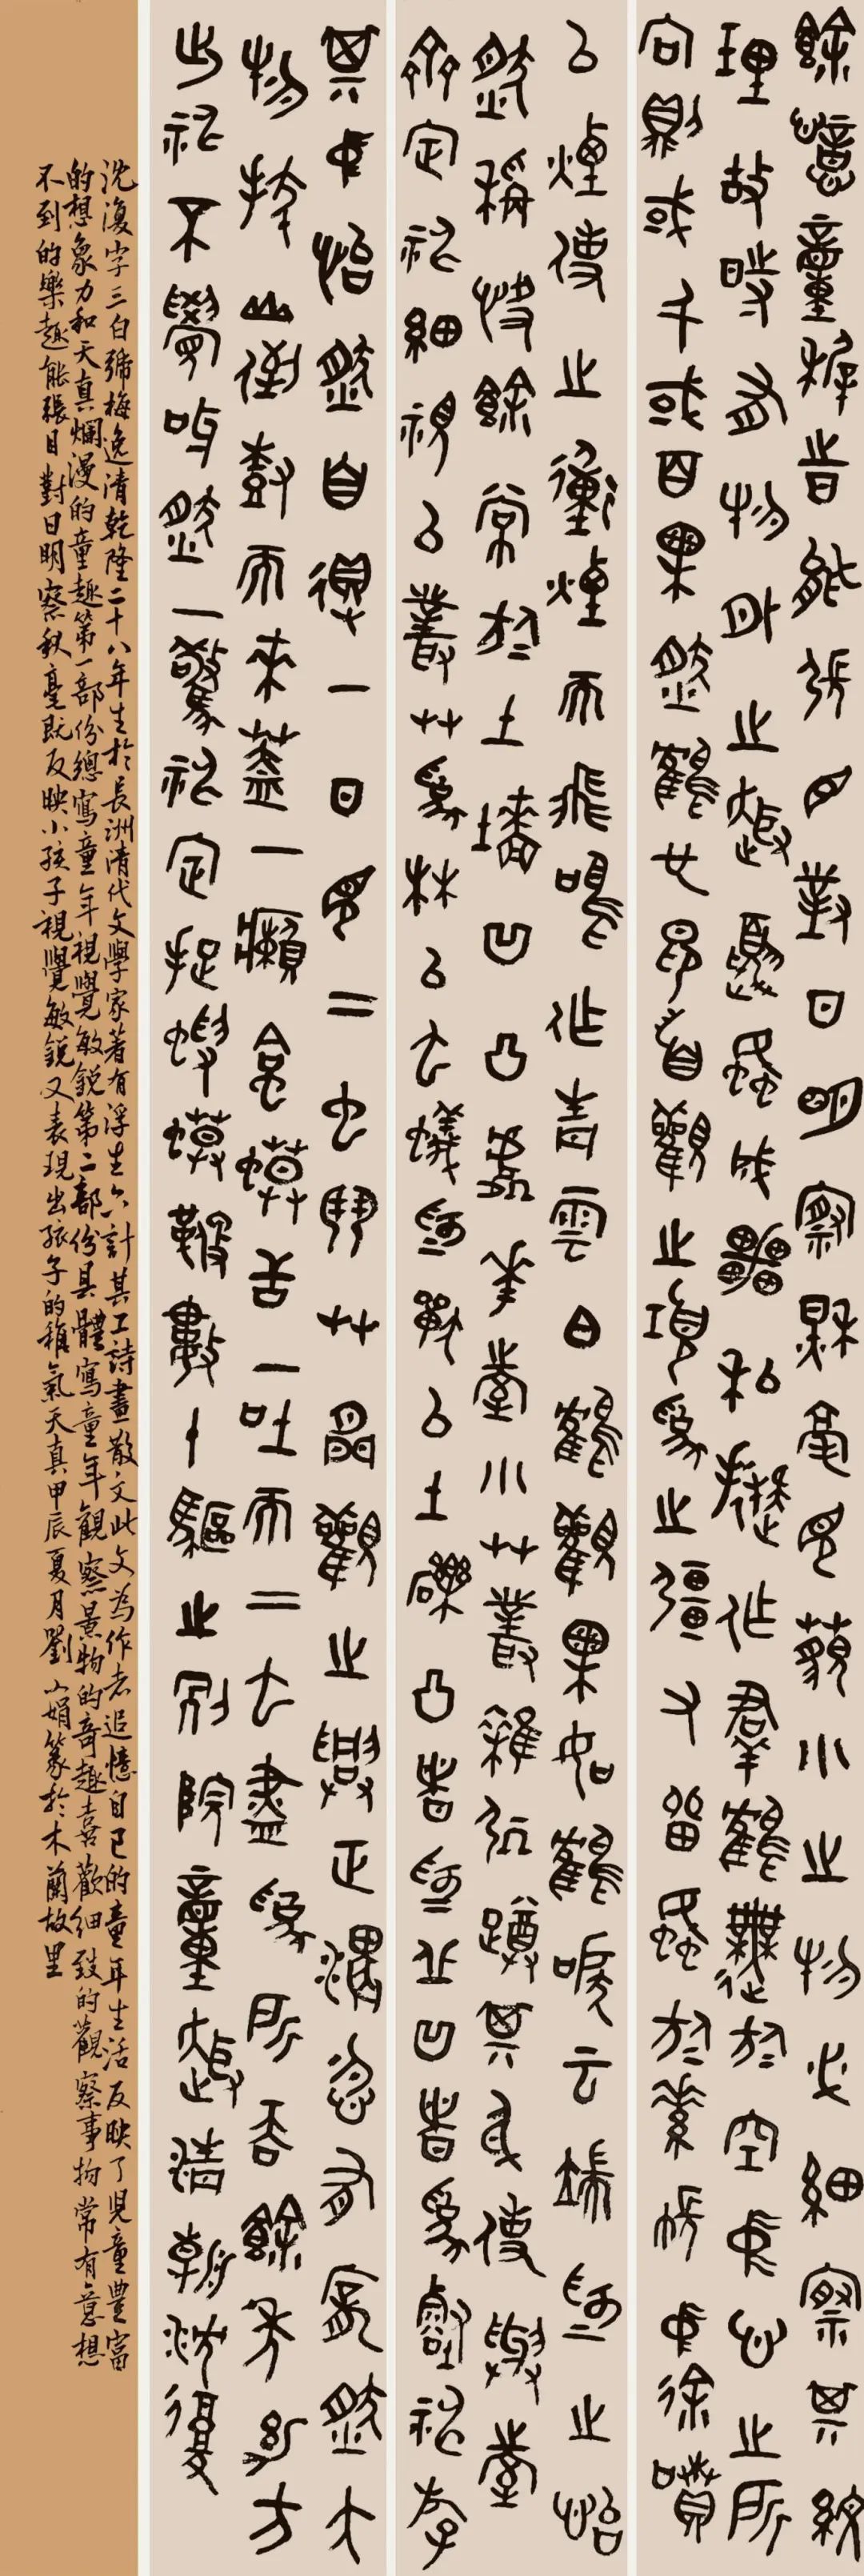 餘憶童稚時能張目對日明察秋毫見藐小之物必細察其紋
理故時有物外之趣夏蚊成雷私擬作群鶴舞於空中心之所
向則或千或百果然鶴也昂首觀之項為之強又留蚊於素帳中徐噴
以煙使之衝煙而飛鳴作青雲白鶴觀果如鶴唳云端為之怡
然稱快餘常於土墻凹凸處花臺小艸叢雜處蹲其身使與臺
齊定神細視以叢艸為林以虫蟻為獸以土礫凸者為丘凹者為壑神遊
其中怡然自得一日見二虫鬥艸間觀之興正濃忽有龐然大
物拔山倒樹而來蓋一癩蝦蟆舌一吐而二虫盡為所吞餘年幼方
出神不覺呀然一驚神定捉蝦蟆鞭數十驅之別院童趣清朝沈復
沈復字三白號梅逸清乾隆二十八年生於長洲清代文學家著有浮生六計其工詩畫散文此文為作者追憶自己的童年生活反映了児童豐富
的想象力和天真爛漫的童趣第一部份總寫童年視覺敏銳第二部份具體寫童年觀察景物的奇趣喜歡細致的觀察事物常有意想
不到的樂趣能張目對日明察秋毫既反映小孩子視覺敏銳又表現出孩子的稚氣天真甲辰夏月劉小娟篆於木蘭故里